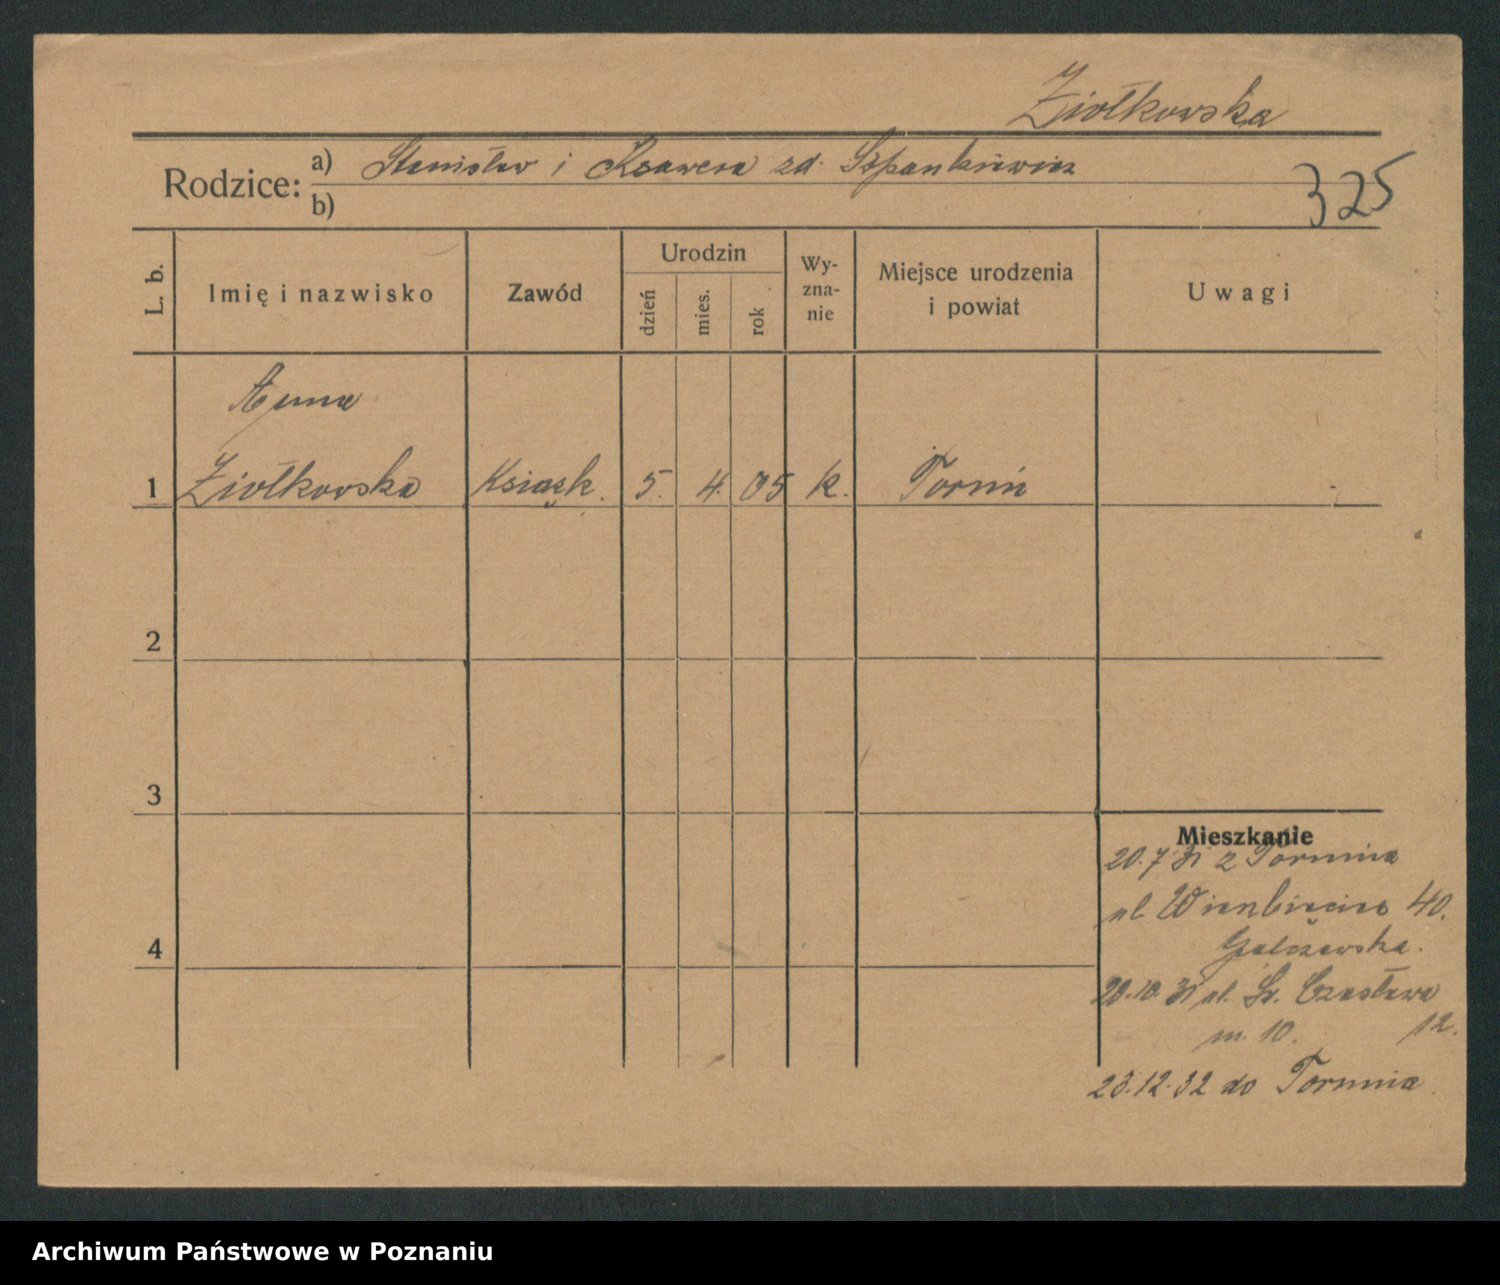 Ziołkowska
Rodzice: a) Stanisław i Ksawera zd. Szpankiewicz
b)
325
L. b. Imię i nazwisko Zawód Urodzin dzień mies. rok Wyznanie Miejsce urodzenia i powiat Uwagi
Anna
1 Ziołkowska Książk. 5. 4. 05 k. Toruń
2
3
Mieszkanie
20.7 31 z Torunia
ul. Wierzbięcice 40.
4
20.10 31 ul. Św. Czesława
m. 10. 12.
23.12.32 do Torunia
Archiwum Państwowe w Poznaniu